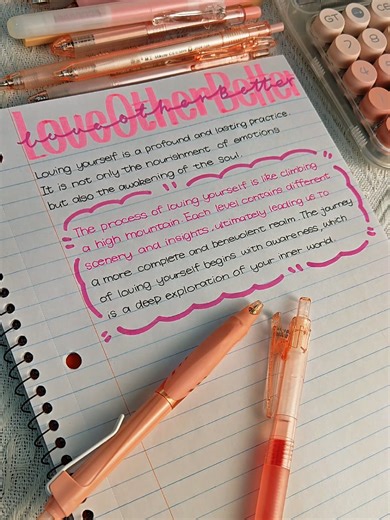 LoveOtherBetter
love other Better
Loving yourself is a profound and lasting practice.
It is not only the nourishment of emotions
but also the awakening of the soul.
The process of loving yourself is like climbing
a high mountain. Each level contains different
scenery and insights, ultimately leading us to
a more complete and benevolent realm. The journey
of loving yourself begins with awareness, which
is a deep exploration of your inner world.
GT
CE
7
8
9
4